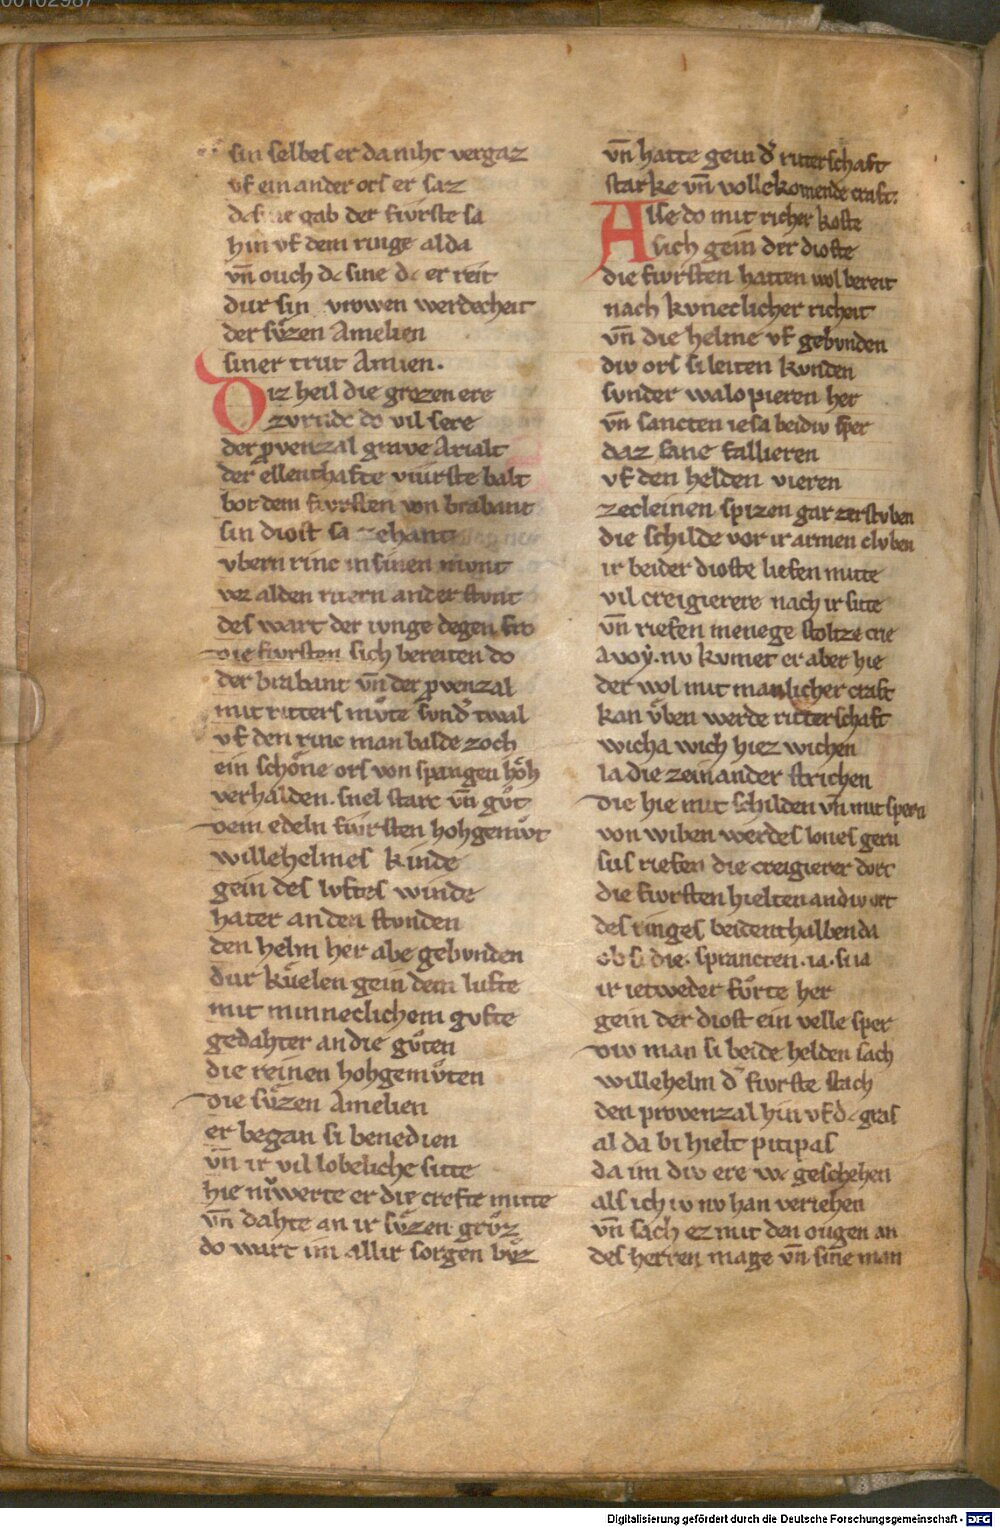 00102987
sin selbes er da niht vergaz
vf ein ander ors er saz
gab der fivrste sa
hin vf dem ringe alda
vn̄ ouch dc sine dc er reit
dur sin vrowen werdecheit
der svͤzen Amelien
siner trut Amien.
Diz heil die grozen ere
do vil sere
der pvenzal grave Arialt
der ellenthafte viurste balt
bot dem fivrsten von brabant
sin diost sa zehant
vbern rinc in sinen mvnt
alden ritern ander stvnt
des wart der ivnge degen fro
die fivrsten sich bereiten do
der brabant vn̄ der pvenzal
mit ritters mvͦte svnd' twal
vf den rinc man balde zoch
ein schoͤne ors von spangen hoͤh
verhalden. snel starc vn̄ gvͦt
dem edeln fivrsten hohgemvͦt
willehelmes kinde
gein des lvftes winde
hater an den stvnden
den helm her abe gebvnden
dur kuͤelen gein dem lufte
mit minneclichem gvfte
gedahter an die gvͦten
die reinen hohgemvͦten
die svͤzen Amelien
er began si benedien
vn̄ ir vil lobeliche sitte
hie niwerte er die crefte mitte
vn̄ dahte an ir svͤzen grvͦz
do wart im allir sorgen bvͦz
vn̄ hatte gein d' ritterschaft
starke vn̄ vollekomende craft.
Alse do mit richer koste
sich gein der dioste
die fivrsten hatten wol bereit
nach kvneclicher richeit
vn̄ die helme vf gebvnden
div ors si leiten kvnden
svnder walopieren her
vn̄ sancten iesa beidiv sper
daz sane fallieren
vf den helden vieren
zecleinen spizen gar zerstvben
die schilde vor ir armen clvben
ir beider dioste liefen mitte
vil creigierere nach ir sitte
vn̄ riefen menege stoltze crie
avoy. nv kvmet er aber hie
der wol mit manlicher craft
kan vͤben werde ritterschaft
wicha wich hiez wichen
la die zein ander strichen
die hie mit schilden vn̄ mit spern
von wiben werdes lones gern
sus riefen die creigierer dort
die fivrsten hielten an div ort
des ringes beidenthalben da
ob si die. sprancten. ia. sua
ir ietweder fvͦrte her
gein der diost ein velle sper
div man si beide helden sach
willehelm d' fivrste stach
den provenzal hin vf dc gras
al da bi hielt pitipas
da im div ere wc geschehen
als ich iv nv han veriehen
vn̄ sach ez mit den ougen an
des herren mage vn̄ sine man
Digitalisierung gefördert durch die Deutsche Forschungsgemeinschaft - DFG